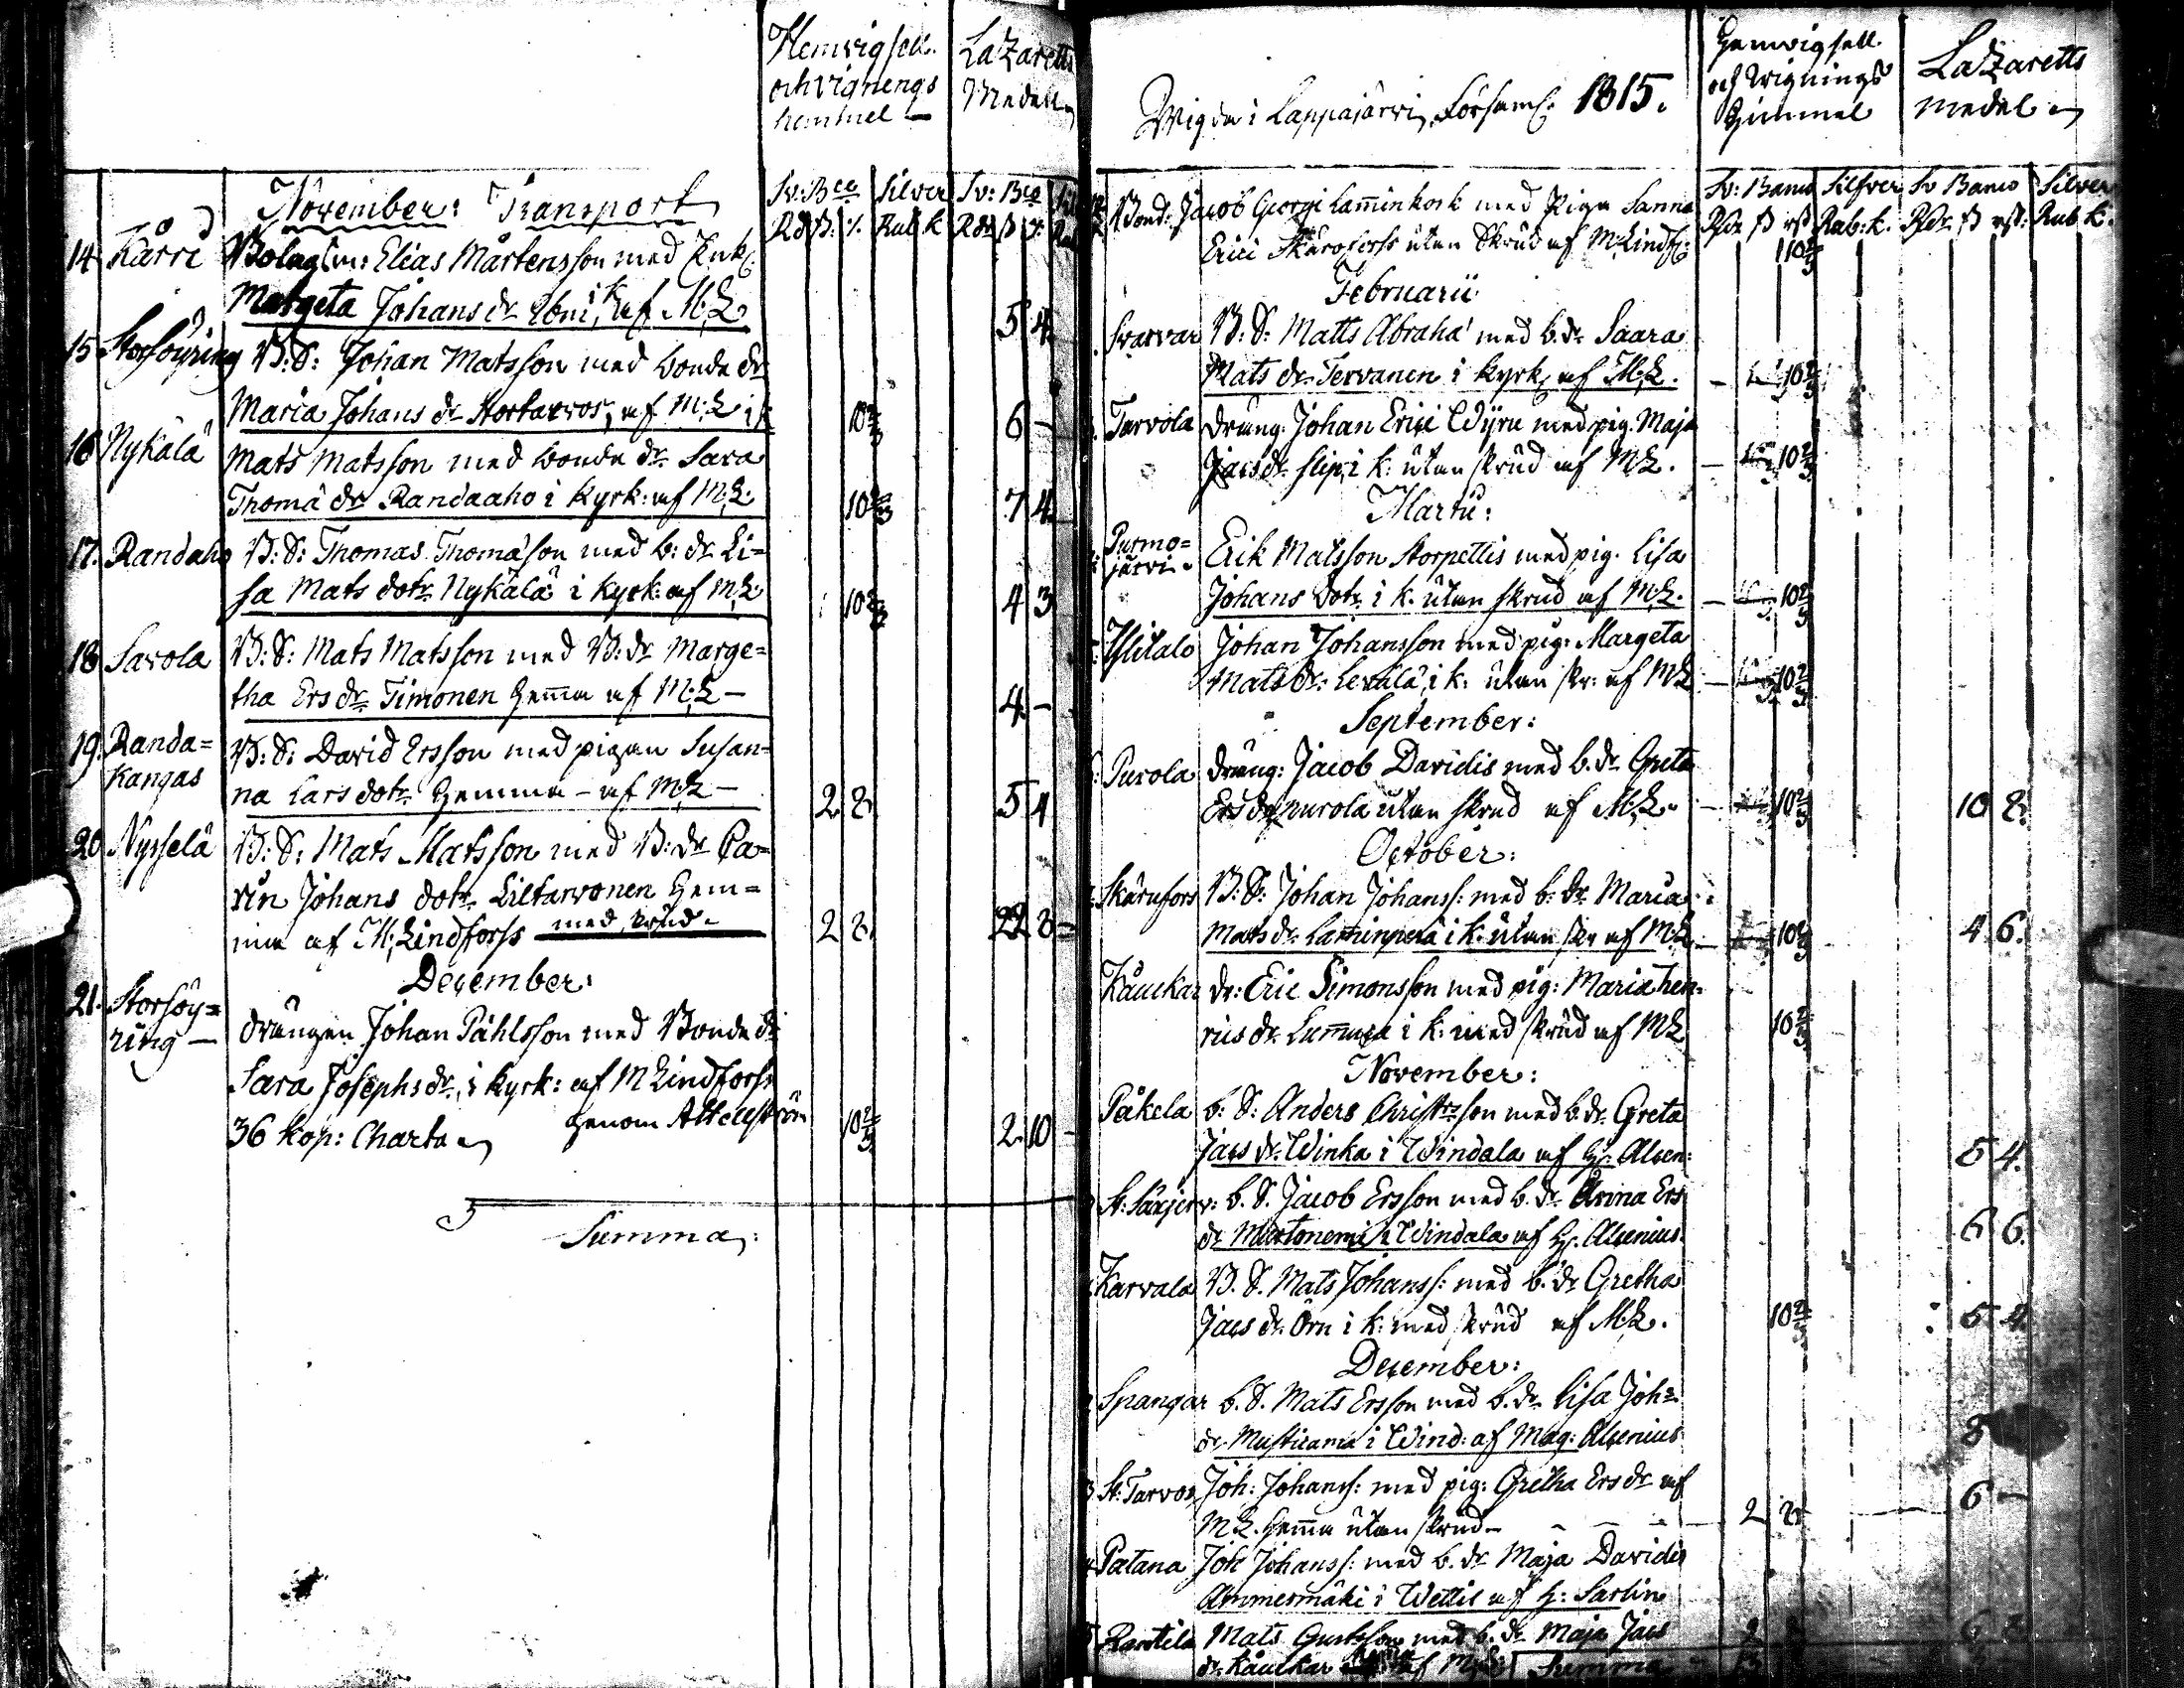 Hemvigsell. LaZaretts
och Vignengs Medell
hemmel
November: Transport
Sv: Bco Silver Sv: Bco
Rd ß: r. Rub k Rdr ß r.
14 Kårre Bolagsm: Elias Mårtensson med Enk:
Margeta Johans dr ibm i k af M: L 5 4
15 Storsöyring B: S: Johan Matsson med bonde dr
Maria Johans dr Stortarvos, af M: L i k 10 2/3 6 -
16 Nykälä Mats Matsson med bonde dr Sara
Thomä dr Randaaho i Kyrk: af M: L. 10 2/3 7 4
17. Randaho B: S: Thomas Thomäson med b: dr Li=
sa Mats dotr Nykälä i kyrk: af M: L 10 2/3 4 3
18 Savola B: S: Mats Matsson med B: dr Marge=
tha Ers dr Timonen hemma af M: L - 4 -
19. Randa= B: S: David Ersson med pigan Susan=
Kangas na Lars dotr hemma - af M: L - 2 2 5 4
20 Nysselä B: S: Mats Matsson med B: dr Ca=
rin Johans dotr Liltarvonen hem=
ma af M: Lindforss med skrud. 2 2 22 8
December:
21. Storsöy= drängen Johan Påhlsson med Bonde dr
ring — Sara Josephs dr, i kyrk: af M Lindforss
36 kop: Charta genom Attellström 10 2/3 2 10
Summa:
Wigde i Lappajärvi Församl: 1815.
Hemvigsell. LaZaretts
och Wignings medel
himmel
Sv: Banco Silfver Sv Banco Silver
Rdr ß rst Rub: k. Rdr ß rst: Rub k.
Bond: Jacob Georgi Lamminkosk med Piga Sanna
Erici Skärofors utan Skrud af M: Lindf: 10 2/3
Februarii
Svarvar B: S: Matts Abraha' med b. dr Saara
Mats dr Tervanen i kyrk, af M: L. 10 2/3
Tarvola dräng: Johan Erici Wyru med pig. Maja
Jacs dr slip, i k: utan skrud af M: L. 10 2/3
Martii:
Purmo= Erik Matsson Storpettis med pig. Lisa
järvi. Johans dotr i k. utan skrud af M: L. 10 2/3
Ylitalo Johan Johansson med pig: Margeta
Mats dr: Levälä, i k: utan skr: af M: L 10 2/3
September:
Purola dräng: Jacob Davidis med b. dr Greta
Ers dr purola utan skrud af M: L. 10 2/3 10 8.
October:
Skärufors B: S: Johan Johanss: med b: dr Maria
Mats dr Lamminperä i k. utan skr af M: L 10 2/3 4 6.
Kauckar dr: Eric Simonsson med pig: Maria Hen=
rics dr Lummea i k: med skrud af M: L 10 2/3
November:
Påkela b: S: Anders Christrsson med b. dr Greta
Jacs dr Winka i Windala af Hr Alcen: 5 4.
St: Sääjerv: b. S. Jacob Ersson med b. dr Anna Ers
dr Martonemi i Windala af Hr. Alcenius. 6 6.
Karvala B. S. Mats Johanss: med b. dr Gretha
Jacs dr Örn i k: med skrud af M: L. 10 2/3 5 4.
December:
Spangar b. S. Mats Ersson med b. dr Lisa Joh=
dr Musticama i Wind: af Mag: Alcenius 8
St: Tarvos Joh: Johanss: med pig: Gretha Ers dr af
M: L. hemma utan skrud - 2 2 6 -
Patana Joh Johanss: med b. dr Maja Davidis
Ammesmäki i Wettil af H: Sarlin
Rantila Mats Gustsson med b. dr Maja Jacs
dr Kauckar af M: L: Summa